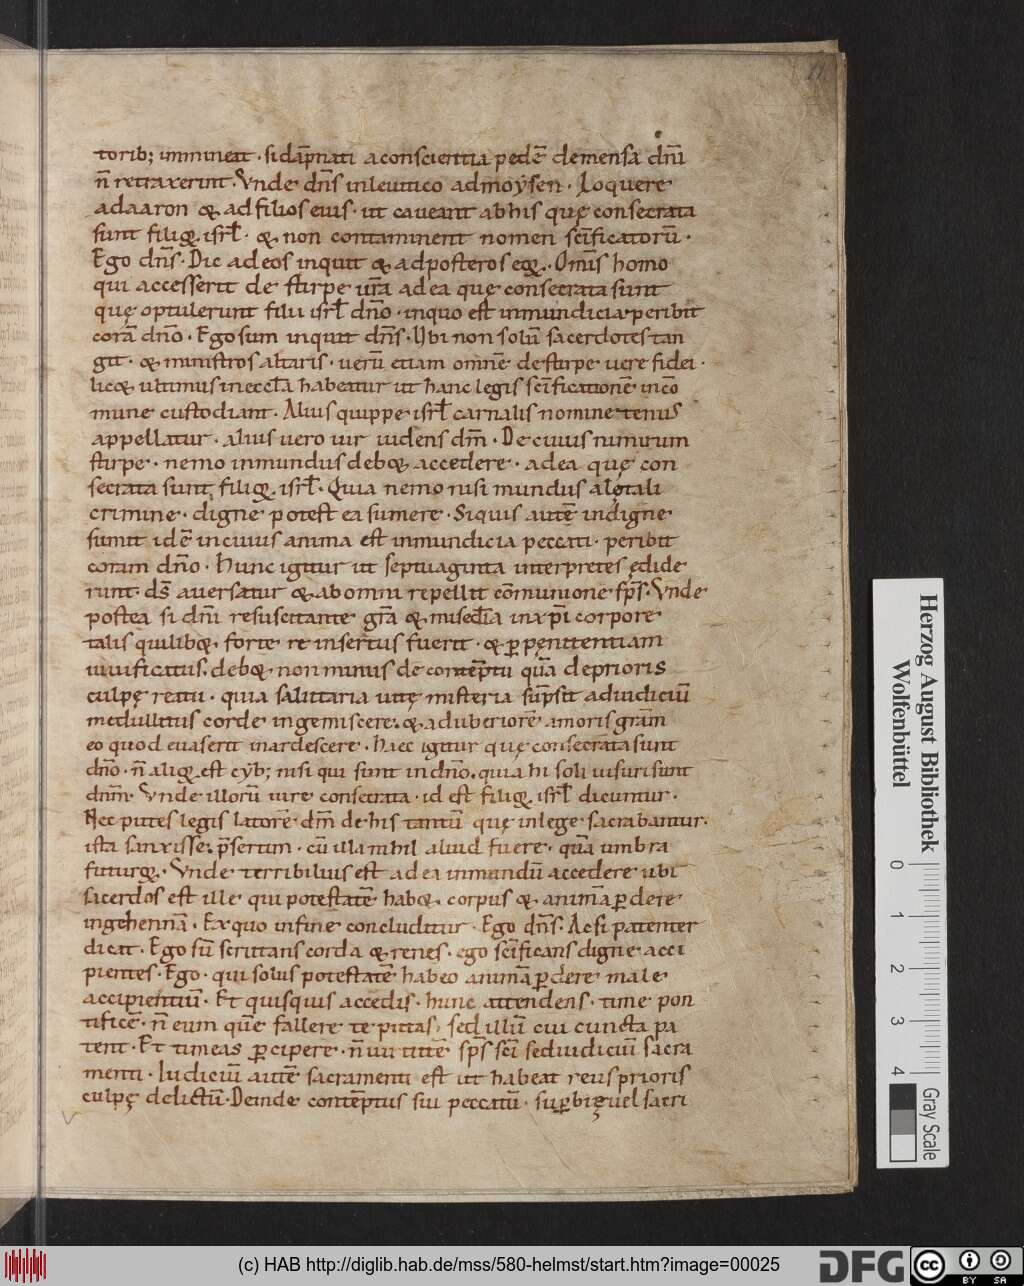 torib; immineat · si dāpnati a conscientia pedē de mensa dnī
n̄ retraxerint · Vnde dn̄s in leuitico ad moẏsen · Loquere
ad aaron & ad filios eius · ut caueant ab his quę consecrata
sunt filioꝝ isrƚ · & non contaminent nomen scīficatorū ·
Ego dn̄s · Dic ad eos inquit & ad posteros eoꝝ · Omīs homo
qui accesserit de stirpe ur̄a ad ea quę consecrata sunt
quę optulerunt filii isrƚ dn̄o · in quo est inmundicia · peribit
corā dn̄o · Ego sum inquit dn̄s · Vbi non solū sacerdotes tan
git · & ministros altaris · uerū etiam omnē de stirpe uere fidei ·
lic& ultimus in eccƚa habeatur ut hanc legis scīficationē in cō
mune custodiant · Alius quippe isrƚ carnalis nomine tenus
appellatur · alius uero uir uidens dm̄ · De cuius nimirum
stirpe · nemo inmundus deb& accedere · ad ea quę con
secrata sunt filioꝝ isrƚ · Quia nemo nisi mundus a lętali
crimine · digne potest ea sumere · Siquis autē indigne
sumit idē in cuius anima est inmundicia peccati · peribit
coram dn̄o · Hunc igitur ut septuaginta interpretes ędide
runt · ds̄ auersatur & ab omni repellit cōmunione sp̄s · Vnde
postea si dnī resuscitante gr̄a & misedīa in xp̄i corpore
talis quilib& · forte re insertus fuerit · & ꝑ pęnitentiam
uiuificatus · deb& non minus de contēptu quā de prioris
culpę reatu · quia salutaria uitę misteria sūpsit ad iudiciū
medullitus corde ingemiscere · & ad uberiorē amoris grām
eo quod euaserit inardescere · Haec igitur quę consecrata sunt
dn̄o · n̄ alioꝝ est cẏb; nisi qui sunt in dn̄o · quia hi soli uisuri sunt
dnm̄ · Vnde illorū iure consecrata · id est filioꝝ isrƚ dicuntur ·
Nec putes legis latorē dm̄ de his tantū quę in lege sacrabantur ·
ista sanxisse · p̄sertim · cū illa nihil aliud fuere · quā umbra
futuroꝝ · Vnde terribilius est ad ea inmundū accedere ubi
sacerdos est ille qui potestatē hab& · corpus & animā ꝑdere
in gehennā · Ex quo in fine concluditur · Ego dn̄s · Ac si patenter
dicat · Ego sū scrutans corda & renes · ego scīficans digne acci
pientes · Ego · qui solus potestatē habeo animā ꝑdere male
accipientiū · Et quisquis accedis · hunc attendens · time pon
tificē · n̄ eum quē fallere te putas · sed illū cui cuncta pa
tent · Et timeas ꝑcipere · n̄ uirtutē sp̄s scī sed iudiciū sacra
menti · Iudiciū autē sacramenti est ut habeat reus prioris
culpę delictū · Deinde contēptus sui peccatū · suꝑbię uel sacri
Herzog August Bibliothek
Wolfenbüttel
0 1 2 3 4
Gray Scale
(c) HAB http://diglib.hab.de/mss/580-helmst/start.htm?image=00025
DFG
cc BY SA